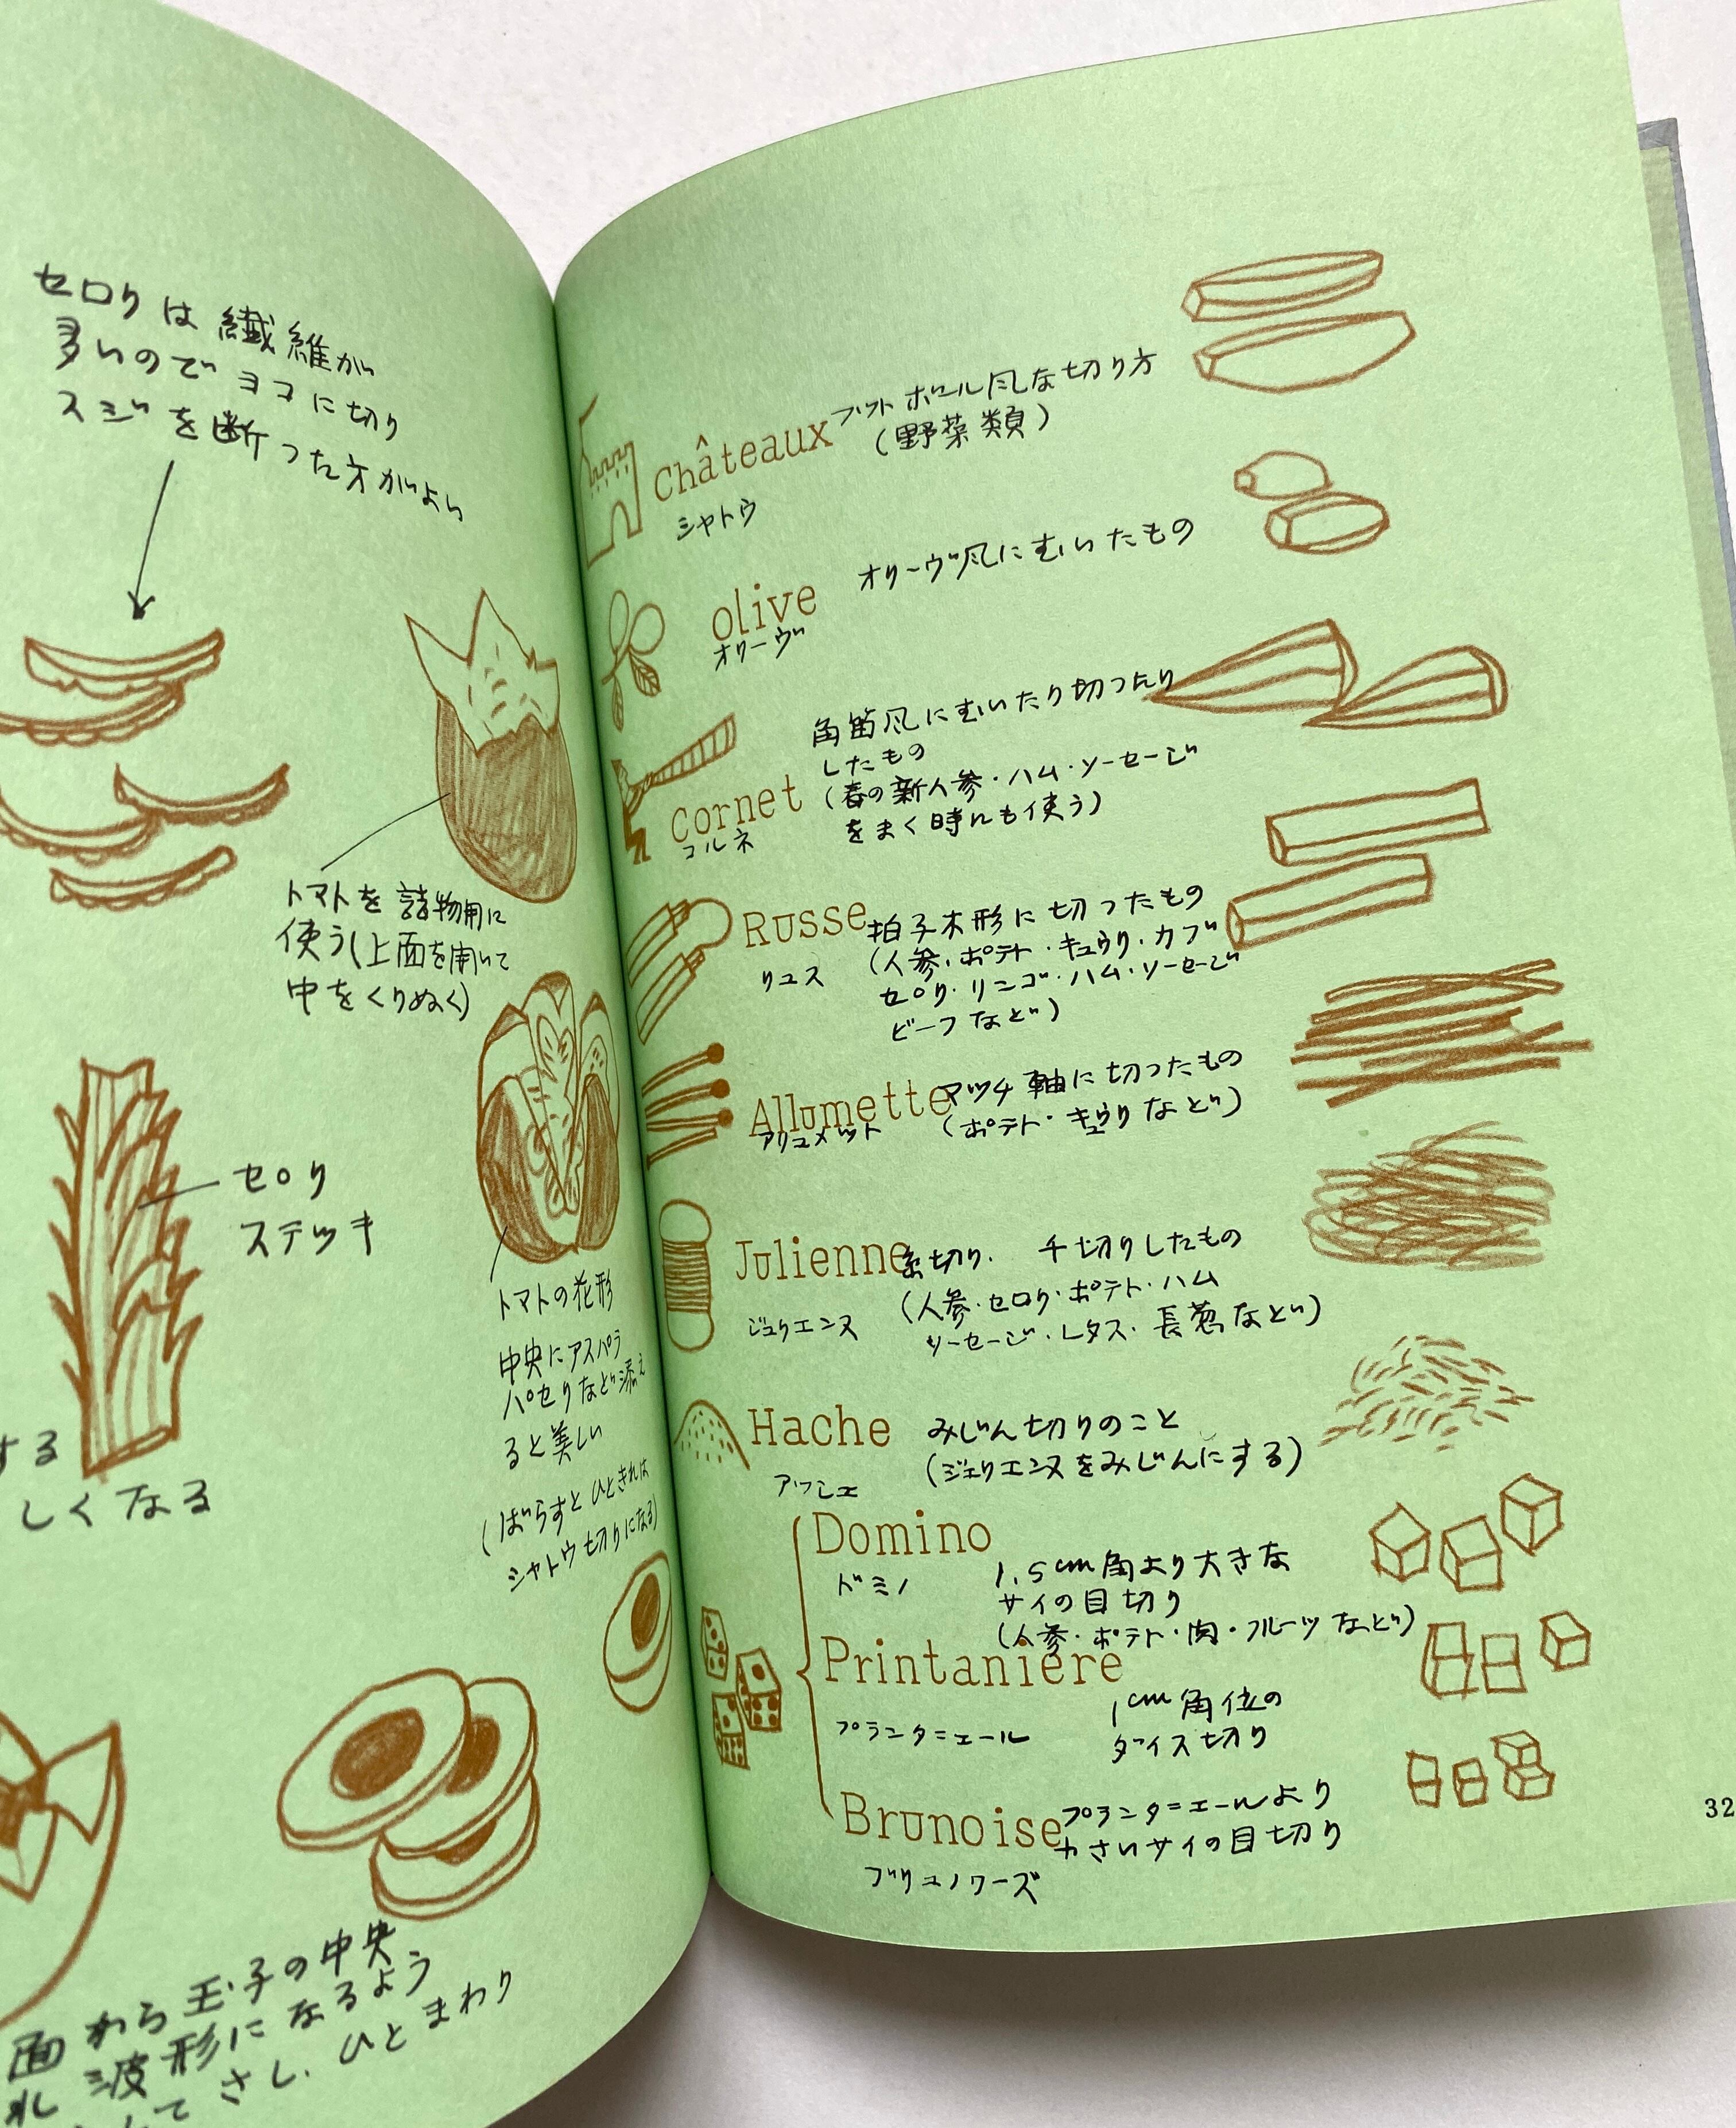 セロリは繊維が
多いのでヨコに切り
スジを断った方がよい
トマトを詰物用に
使う(上面を開いて
中をくりぬく)
セロリ
ステッキ
する
しくなる
トマトの花形
中央にアスパラ
パセリなど添え
ると美しい
(ばらすとひときれは
シャトウ切りになる)
面から玉子の中央
波形になるよう
てさし、ひとまわり
Châteaux フットボール風な切り方
(野菜類)
シャトウ
olive オリーヴ風にむいたもの
オリーヴ
角笛風にむいたり切ったり
したもの
cornet (春の新人参・ハム・ソーセージ
コルネ をまく時にも使う)
Russe 拍子木形に切ったもの
リュス (人参・ポテト・キュウリ・カブ
セロリ・リンゴ・ハム・ソーセージ
ビーフなど)
Allumette マッチ軸に切ったもの
アリュメット (ポテト・キュウリなど)
Julienne 糸切り. 千切りしたもの
ジュリエンヌ (人参・セロリ・ポテト・ハム
ソーセージ・レタス・長葱など)
Hache みじん切りのこと
アッシェ (ジュリエンヌをみじんにする)
Domino
ドミノ 1.5cm角より大きな
サイの目切り
(人参・ポテト・肉・フルーツなど)
Printaniere
プランタニエール 1cm角位の
ダイス切り
Brunoise プランタニエールより
小さいサイの目切り
ブリュノワーズ
32